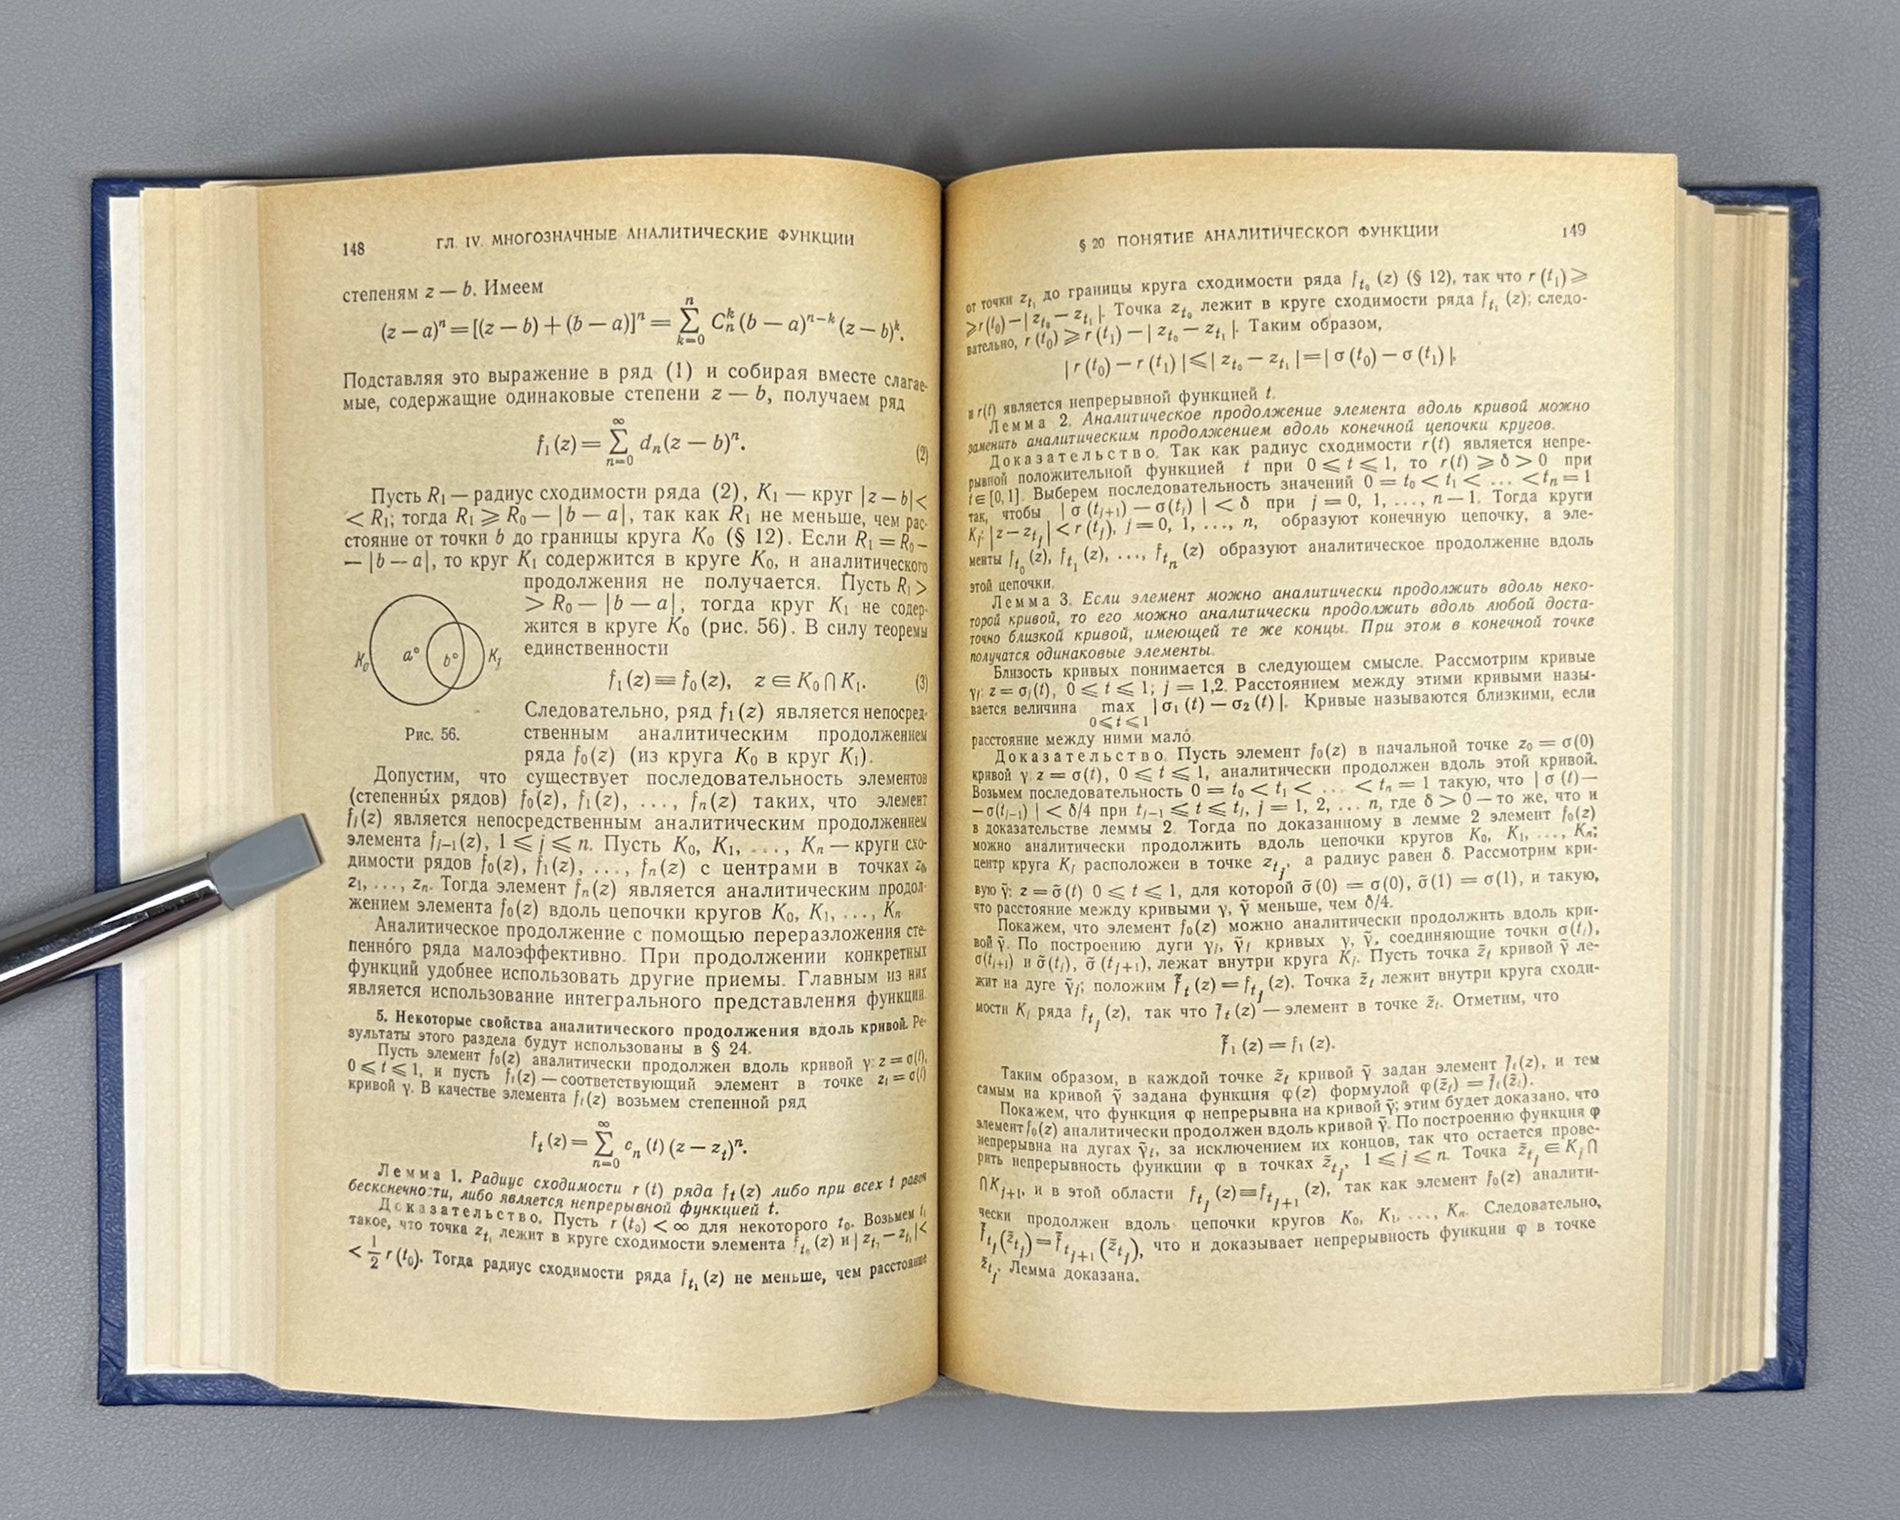 148 ГЛ. IV. МНОГОЗНАЧНЫЕ АНАЛИТИЧЕСКИЕ ФУНКЦИИ
степеням z — b. Имеем
(z — a)ⁿ = [(z — b) + (b — a)]ⁿ = ∑ₖ₌₀ⁿ Cₙᵏ (b — a)ⁿ⁻ᵏ (z — b)ᵏ.
Подставляя это выражение в ряд (1) и собирая вместе слагае-
мые, содержащие одинаковые степени z — b, получаем ряд
f₁ (z) = ∑ₙ₌₀^∞ dₙ (z — b)ⁿ. (2)
Пусть R₁ — радиус сходимости ряда (2), K₁ — круг |z — b| <
< R₁; тогда R₁ ⩾ R₀ — |b — a|, так как R₁ не меньше, чем рас-
стояние от точки b до границы круга K₀ (§ 12). Если R₁ = R₀ —
— |b — a|, то круг K₁ содержится в круге K₀, и аналитического
продолжения не получается. Пусть R₁ >
> R₀ — |b — a|, тогда круг K₁ не содер-
жится в круге K₀ (рис. 56). В силу теоремы
единственности
f₁ (z) ≡ f₀ (z), z ∈ K₀ ⋂ K₁. (3)
Следовательно, ряд f₁ (z) является непосред-
ственным аналитическим продолжением
ряда f₀ (z) (из круга K₀ в круг K₁).
K₀ a° b° K₁
Рис. 56.
Допустим, что существует последовательность элементов
(степенных рядов) f₀ (z), f₁ (z), ..., fₙ (z) таких, что элемент
fⱼ (z) является непосредственным аналитическим продолжением
элемента fⱼ₋₁ (z), 1 ⩽ j ⩽ n. Пусть K₀, K₁, ..., Kₙ — круги схо-
димости рядов f₀ (z), f₁ (z), ..., fₙ (z) с центрами в точках z₀,
z₁, ..., zₙ. Тогда элемент fₙ (z) является аналитическим продол-
жением элемента f₀ (z) вдоль цепочки кругов K₀, K₁, ..., Kₙ.
Аналитическое продолжение с помощью переразложения сте-
пенного ряда малоэффективно. При продолжении конкретных
функций удобнее использовать другие приемы. Главным из них
является использование интегрального представления функции.
5. Некоторые свойства аналитического продолжения вдоль кривой. Ре-
зультаты этого раздела будут использованы в § 24.
Пусть элемент f₀ (z) аналитически продолжен вдоль кривой γ: z = σ(t),
0 ⩽ t ⩽ 1, и пусть fₜ (z) — соответствующий элемент в точке zₜ = σ(t)
кривой γ. В качестве элемента fₜ (z) возьмем степенной ряд
fₜ (z) = ∑ₙ₌₀^∞ cₙ (t) (z — zₜ)ⁿ.
Лемма 1. Радиус сходимости r (t) ряда fₜ (z) либо при всех t равен
бесконечности, либо является непрерывной функцией t.
Доказательство. Пусть r (t₀) < ∞ для некоторого t₀. Возьмем t₁
такое, что точка z_{t₁} лежит в круге сходимости элемента f_{t₀} (z) и | z_{t₀} — z_{t₁} | <
< 1/2 r (t₀). Тогда радиус сходимости ряда f_{t₁} (z) не меньше, чем расстояние
§ 20 ПОНЯТИЕ АНАЛИТИЧЕСКОЙ ФУНКЦИИ 149
от точки z_{t₁} до границы круга сходимости ряда f_{t₀} (z) (§ 12), так что r (t₁) ⩾
⩾ r (t₀) — | z_{t₀} — z_{t₁} |. Точка z_{t₀} лежит в круге сходимости ряда f_{t₁} (z); следо-
вательно, r (t₀) ⩾ r (t₁) — | z_{t₀} — z_{t₁} |. Таким образом,
| r (t₀) — r (t₁) | ⩽ | z_{t₀} — z_{t₁} | = | σ (t₀) — σ (t₁) |,
и r(t) является непрерывной функцией t.
Лемма 2. Аналитическое продолжение элемента вдоль кривой можно
заменить аналитическим продолжением вдоль конечной цепочки кругов.
Доказательство. Так как радиус сходимости r (t) является непре-
рывной положительной функцией t при 0 ⩽ t ⩽ 1, то r(t) ⩾ δ > 0 при
t ∈ [0, 1]. Выберем последовательность значений 0 = t₀ < t₁ < ... < tₙ = 1
так, чтобы | σ (tⱼ₊₁) — σ(tⱼ) | < δ при j = 0, 1, ..., n — 1. Тогда круги
Kⱼ: | z — z_{tⱼ} | < r (tⱼ), j = 0, 1, ..., n, образуют конечную цепочку, а эле-
менты f_{t₀} (z), f_{t₁} (z), ..., f_{tₙ} (z) образуют аналитическое продолжение вдоль
этой цепочки.
Лемма 3. Если элемент можно аналитически продолжить вдоль неко-
торой кривой, то его можно аналитически продолжить вдоль любой доста-
точно близкой кривой, имеющей те же концы. При этом в конечной точке
получатся одинаковые элементы.
Близость кривых понимается в следующем смысле. Рассмотрим кривые
γⱼ: z = σⱼ(t), 0 ⩽ t ⩽ 1; j = 1,2. Расстоянием между этими кривыми назы-
вается величина max | σ₁ (t) — σ₂ (t) |. Кривые называются близкими, если
0 ⩽ t ⩽ 1
расстояние между ними мало.
Доказательство. Пусть элемент f₀ (z) в начальной точке z₀ = σ(0)
кривой γ: z = σ(t), 0 ⩽ t ⩽ 1, аналитически продолжен вдоль этой кривой.
Возьмем последовательность 0 = t₀ < t₁ < ... < tₙ = 1 такую, что | σ (t) —
— σ(tⱼ₋₁) | < δ/4 при tⱼ₋₁ ⩽ t ⩽ tⱼ, j = 1, 2, ... n, где δ > 0 — то же, что и
в доказательстве леммы 2. Тогда по доказанному в лемме 2 элемент f₀(z)
можно аналитически продолжить вдоль цепочки кругов K₀, K₁, ..., Kₙ;
центр круга Kⱼ расположен в точке z_{tⱼ}, а радиус равен δ. Рассмотрим кри-
вую γ̃: z = σ̃ (t) 0 ⩽ t ⩽ 1, для которой σ̃ (0) = σ(0), σ̃ (1) = σ(1), и такую,
что расстояние между кривыми γ, γ̃ меньше, чем δ/4.
Покажем, что элемент f₀ (z) можно аналитически продолжить вдоль кри-
вой γ̃. По построению дуги γⱼ, γ̃ⱼ кривых γ, γ̃, соединяющие точки σ(tⱼ),
σ(tⱼ₊₁) и σ̃(tⱼ), σ̃ (tⱼ₊₁), лежат внутри круга Kⱼ. Пусть точка z̃ₜ кривой γ̃ ле-
жит на дуге γ̃ⱼ; положим f̃ₜ (z) = f_{tⱼ} (z). Точка z̃ₜ лежит внутри круга сходи-
мости Kⱼ ряда f_{tⱼ} (z), так что f̃ₜ (z) — элемент в точке z̃ₜ. Отметим, что
f̃₁ (z) = f₁ (z).
Таким образом, в каждой точке z̃ₜ кривой γ̃ задан элемент f̃ₜ(z), и тем
самым на кривой γ̃ задана функция φ(z) формулой φ(z̃ₜ) = f̃ₜ(z̃ₜ).
Покажем, что функция φ непрерывна на кривой γ̃; этим будет доказано, что
элемент f₀(z) аналитически продолжен вдоль кривой γ̃. По построению функция φ
непрерывна на дугах γ̃ⱼ, за исключением их концов, так что остается прове-
рить непрерывность функции φ в точках z̃_{tⱼ}, 1 ⩽ j ⩽ n. Точка z̃_{tⱼ} ∈ Kⱼ ⋂
⋂ Kⱼ₊₁, и в этой области f_{tⱼ} (z) ≡ f_{tⱼ₊₁} (z), так как элемент f₀(z) аналити-
чески продолжен вдоль цепочки кругов K₀, K₁, ..., Kₙ. Следовательно,
f̃_{tⱼ} (z̃_{tⱼ}) = f̃_{tⱼ₊₁} (z̃_{tⱼ}), что и доказывает непрерывность функции φ в точке
z̃_{tⱼ}. Лемма доказана.